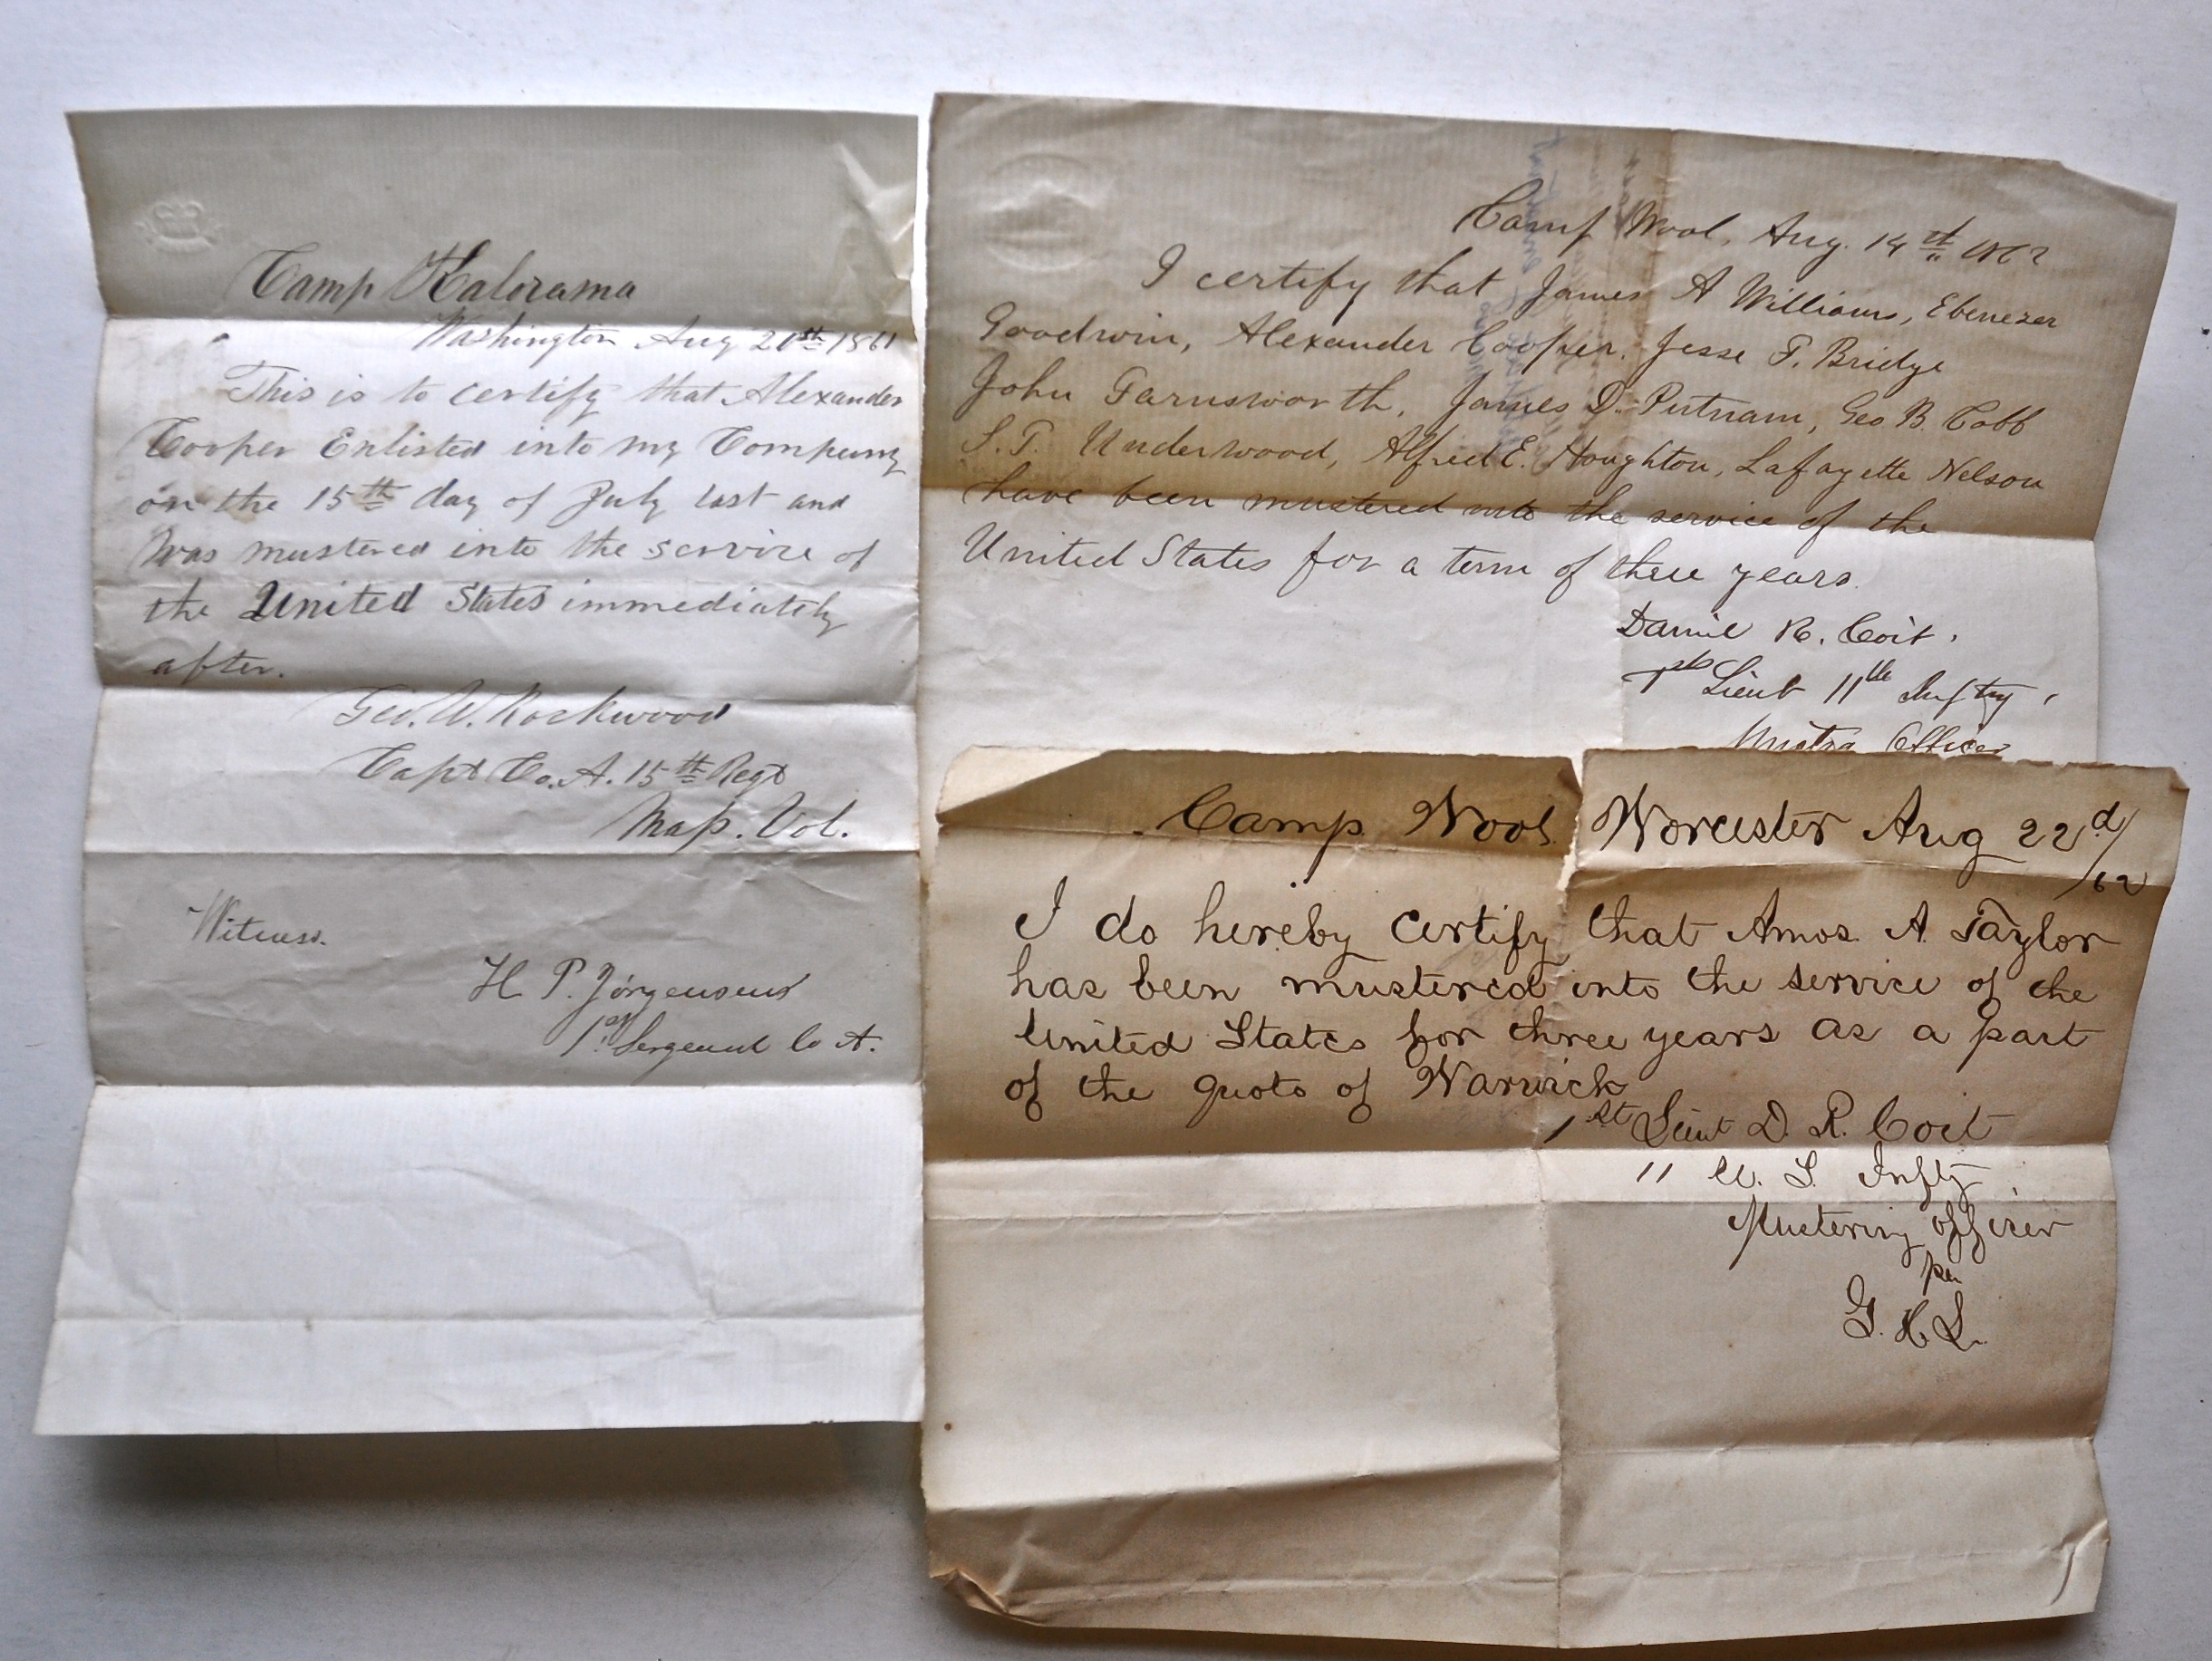 Camp Kalorama
Washington Aug 20th 1861
This is to certify that Alexander
Cooper Enlisted into my Company
on the 15th day of July last and
was mustered into the service of
the United States immediately
after.
Geo. W. Rockwood
Capt Co. A. 15th Regt
Mass. Vol.
Witness.
H P. Jorgensen
1st Sergeant Co A.
Camp Wool, Aug. 14th 1862
I certify that James A Williams, Ebenezer
Goodwin, Alexander Cooper, Jesse F. Bridge
John Farnsworth, James D. Putnam, Geo B. Cobb
S. F. Underwood, Alfred E. Houghton, Lafayette Nelson
have been mustered into the service of the
United States for a term of three years.
Daniel R. Coit.
1st Lieut 11th Infty,
Mustrg Officer
Camp Wool Worcester Aug 22d/62
I do hereby certify that Amos A Taylor
has been mustered into the service of the
United States for three years as a part
of the quota of Warwick
1st Lieut D. R. Coit
11 U. S. Infty
Mustering officer
per
G. H. L.